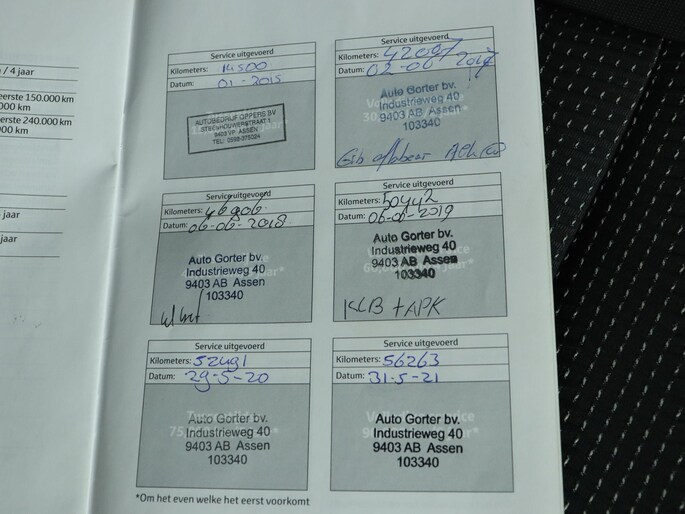 / 4 jaar
eerste 150.000 km
000 km
erste 240.000 km
000 km
jaar
jaar
Service uitgevoerd
Kilometers: 14500
Datum: 01-2015
AUTOBEDRIJF OPPERS BV
STEENHOUWERSTRAAT 1
9403 VP ASSEN
Service uitgevoerd
Kilometers: 42007
Datum: 02-06 2017
Auto Gorter bv.
Industrieweg 40
9403 AB Assen
103340
Service uitgevoerd
Kilometers: 46906
Datum: 06-06-2018
Auto Gorter bv.
Industrieweg 40
9403 AB Assen
103340
Service uitgevoerd
Kilometers: 50442
Datum: 06-06-2019
Auto Gorter bv.
Industrieweg 40
9403 AB Assen
103340
KLB + APK
Service uitgevoerd
Kilometers: 52491
Datum: 29-5-20
Auto Gorter bv.
Industrieweg 40
9403 AB Assen
103340
Service uitgevoerd
Kilometers: 56263
Datum: 31-5-21
Auto Gorter bv.
Industrieweg 40
9403 AB Assen
103340
*Om het even welke het eerst voorkomt